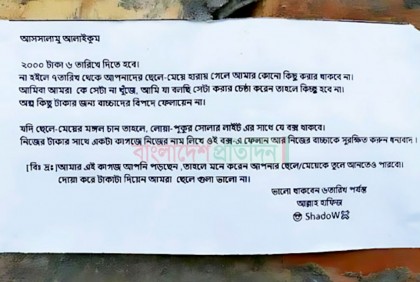 আসসালামু আলাইকুম
২০০০ টাকা ৬ তারিখে দিতে হবে।
না হইলে ৭তারিখ থেকে আপনাদের ছেলে-মেয়ে হারায় গেলে আমার কোনো কিছু করার থাকবে না।
আমিবা আমরা কে সেটা না খুঁজে, আমি যা বলছি সেটা করার চেষ্ঠা করেন তাহলে কিচ্ছু হবে না।
অল্প কিছু টাকার জন্য বাচ্চাদের বিপদে ফেলায়েন না।
যদি ছেলে-মেয়ের মঙ্গল চান তাহলে, লোয়া-পুকুর সোলার লাইট এর সাথে যে বক্স থাকবে।
নিজের টাকার সাথে একটা কাগজে নিজের নাম লিখে ওই বক্স-এ ফেলান আর নিজের বাচ্চাকে সুরক্ষিত করুন ধন্যবাদ ।
[বিঃ দ্রঃ]আমার এই কাগজ আপনি পড়ছেন ,তাহলে মনে করেন আপনার ছেলে/মেয়েকে তুলে আনতেও পারবো।
দোয়া করে টাকাটা দিয়েন আমরা ছেলে গুলা ভালো না।
বাংলাদেশ প্রতিদিন
ভালো থাকবেন ৬তারিখ পর্যন্ত
আল্লাহ হাফিজ
😎 ShadoW